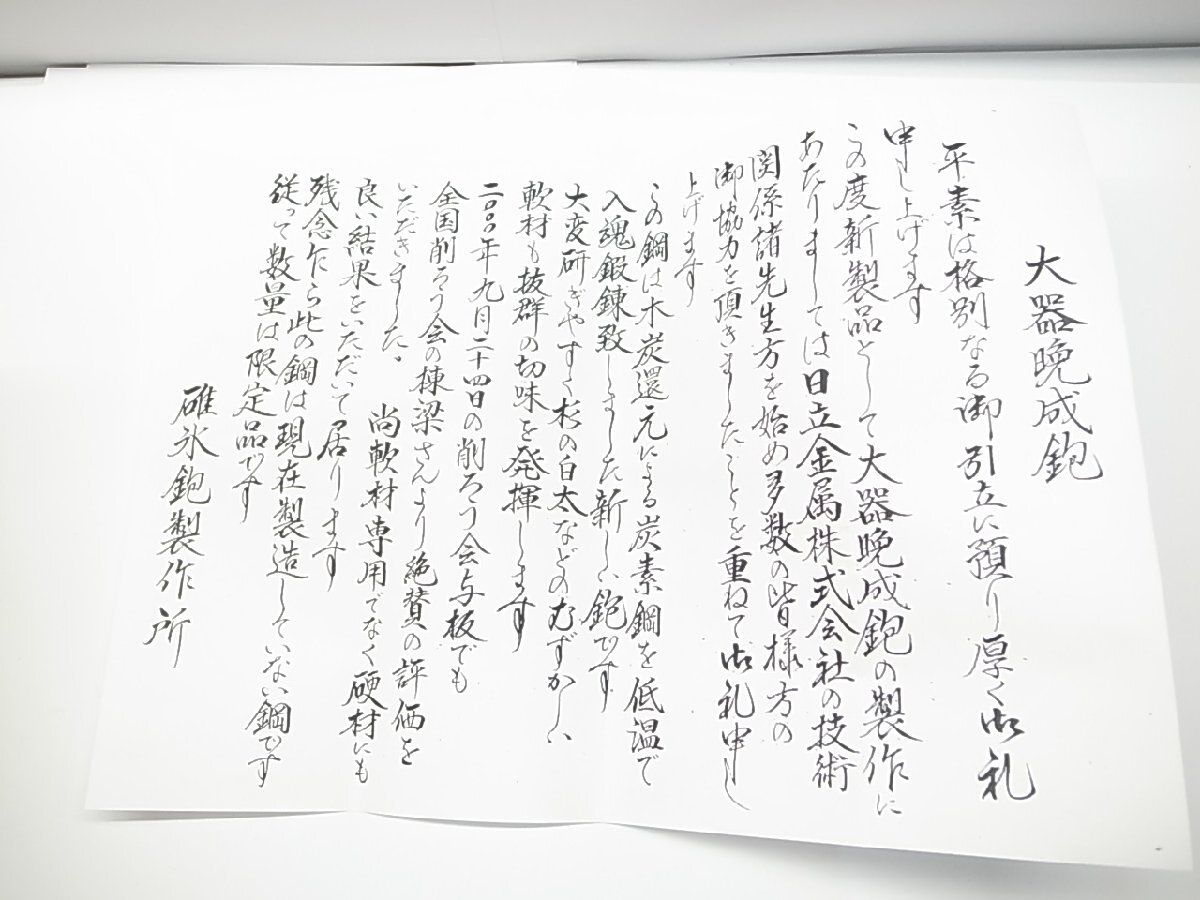 大器晩成鉋
平素は格別なる御引立に預り厚く御礼
申し上げます
この度新製品として大器晩成鉋の製作に
あたりましては日立金属株式会社の技術
関係諸先生方を始め多数の皆様方の
御協力を頂きましたことを重ねて御礼申し
上げます
この鋼は木炭還元による炭素鋼を低温で
入魂鍛錬致しました新しい鉋です
大変研ぎやすく杉の白太などのむずかしい
軟材も抜群の切味を発揮します
二〇〇〇年九月二十四日の削ろう会与板でも
全国削ろう会の棟梁さんより絶賛の評価を
いただきました、尚軟材専用でなく硬材にも
良い結果をいただいて居ります
残念乍ら此の鋼は現在製造していない鋼です
従って数量は限定品です
碓氷鉋製作所